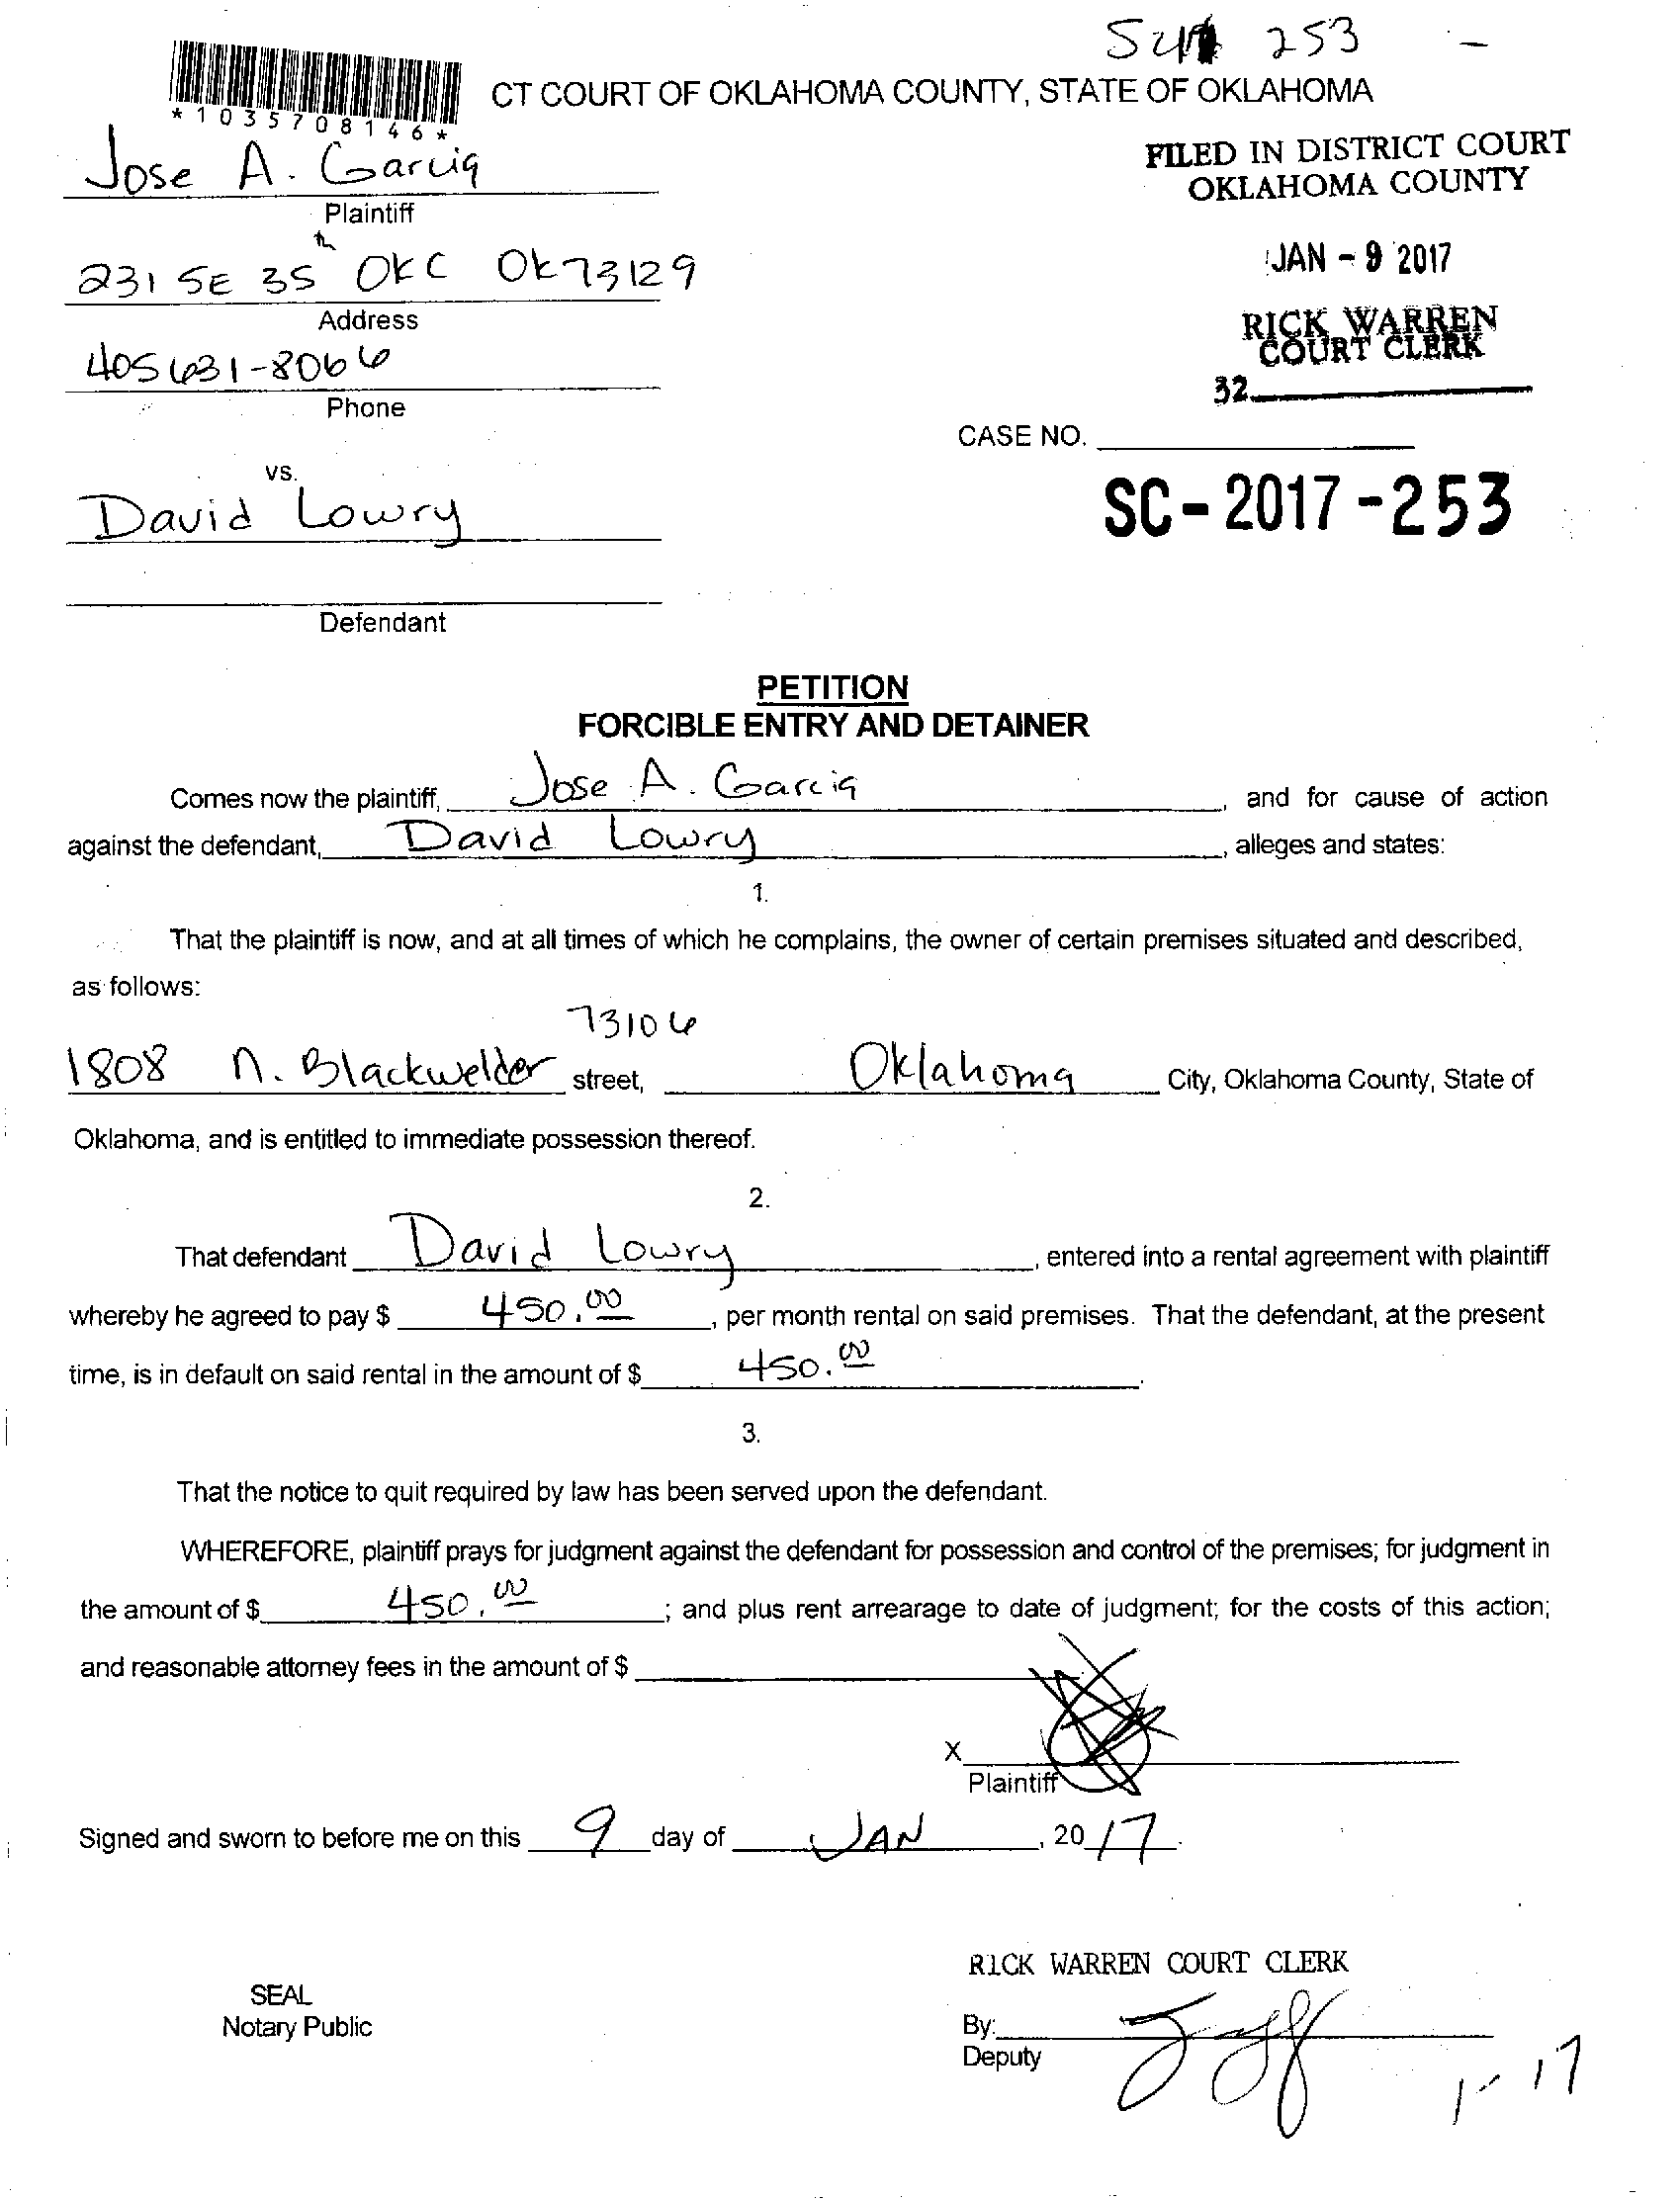 253 -
CT COURT OF OKLAHOMA COUNTY, STATE OF OKLAHOMA
*1035708146*
FILED IN DISTRICT COURT
OKLAHOMA COUNTY
Jose A. Garcia
Plaintiff
JAN - 9 2017
231 SE 35th OKC OK 73129
Address
RICK WARREN
COURT CLERK
405 631-8066
32
Phone
CASE NO.
vs.
David Lowry
SC-2017-253
Defendant
PETITION
FORCIBLE ENTRY AND DETAINER
Comes now the plaintiff, Jose A. Garcia, and for cause of action
against the defendant, David Lowry, alleges and states:
1.
That the plaintiff is now, and at all times of which he complains, the owner of certain premises situated and described,
as follows:
73106
1808 N. Blackwelder street, Oklahoma City, Oklahoma County, State of
Oklahoma, and is entitled to immediate possession thereof.
2.
That defendant David Lowry, entered into a rental agreement with plaintiff
whereby he agreed to pay $ 450.00, per month rental on said premises. That the defendant, at the present
time, is in default on said rental in the amount of $ 450.00.
3.
That the notice to quit required by law has been served upon the defendant.
WHEREFORE, plaintiff prays for judgment against the defendant for possession and control of the premises; for judgment in
the amount of $ 450.00; and plus rent arrearage to date of judgment; for the costs of this action;
and reasonable attorney fees in the amount of $
X
Plaintiff
Signed and sworn to before me on this 9 day of JAN, 2017.
RICK WARREN COURT CLERK
SEAL
Notary Public
By:
Deputy
1-17